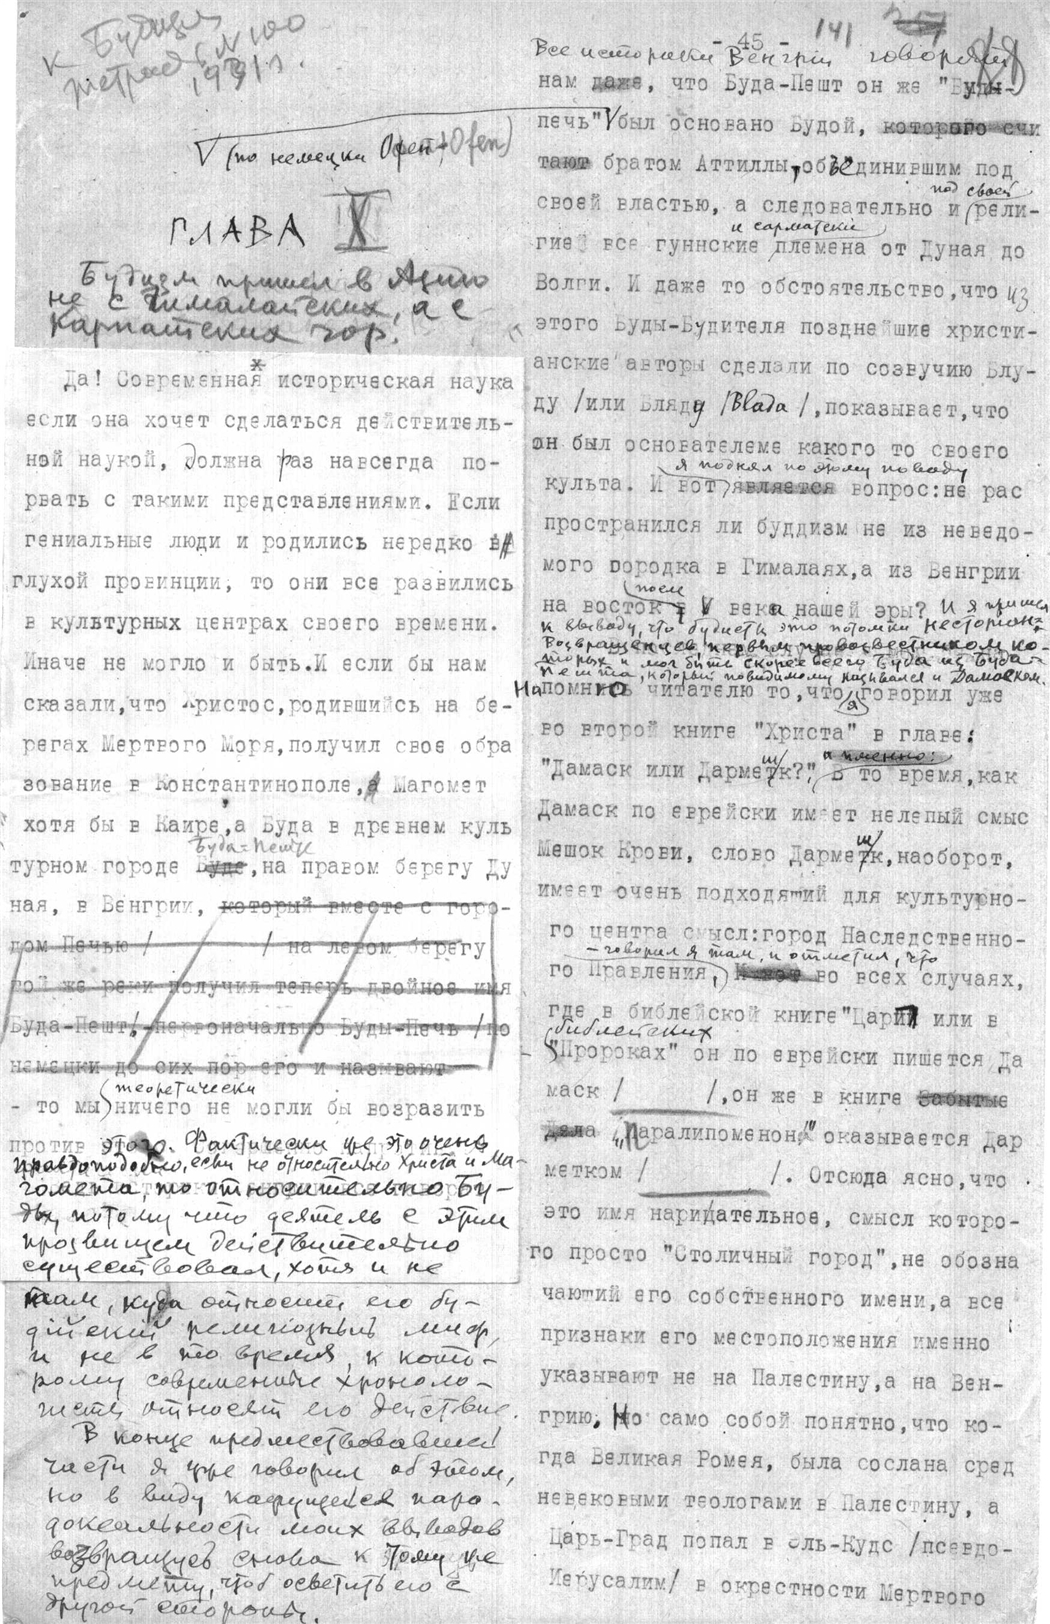 К Будизм
1931 г.
√ (по немецки Офен, Ofen)
ГЛАВА X
Будизм пришел в Азию
не с Гималайских, а с
Карпатских гор.
Да! Современная историческая наука
если она хочет сделаться действитель-
ной наукой, должна раз навсегда по-
рвать с такими представлениями. Если
гениальные люди и родились нередко в
глухой провинции, то они все развились
в культурных центрах своего времени.
Иначе не могло и быть.И если бы нам
сказали,что Христос,родившийсь на бе-
регах Мертвого Моря,получил свое обра
зование в Константинополе,а Магомет
хотя бы в Каире,а Буда в древнем куль
Буда=Пешт
турном городе Буде,на правом берегу Ду
ная, в Венгрии, который вместе с горо-
дом Печью / / на левом берегу
той же реки получил теперь двойное имя
Буда-Пешт/-первоначально Буды-Печь /по
немецки до сих пор его и называют
теоретически
- то мы ничего не могли бы возразить
против этого. Фактически же это очень
правдоподобно, если не относительно Христа и Ма-
гомета, то относительно Бу-
ды, потому что деятель с этим
прозвищем действительно
существовал, хотя и не
там, куда относит его бу-
дийский религиозный миф,
и не в то время, к кото-
рому современные хроноло-
гисты относят его действие.
В конце предшествовавшей
части я уже говорил об этом,
но в виду кажущейся паро-
доксальности моих выводов
возвращусь снова к тому же
предмету, чтоб осветить его с
другой стороны.
- 45 - 141
Все историки Венгрии говорят
нам даже, что Буда-Пешт он же "Буды-
печь"√был основано Будой, которого счи
тают братом Аттиллы, объединившим под
под своей
своей властью, а следовательно и рели-
и сарматские
гией все гуннские племена от Дуная до
Волги. И даже то обстоятельство,что из
этого Буды-Будителя позднейшие христи-
анские авторы сделали по созвучию Блу-
ду /или Бляду /Blada/,показывает,что
он был основателеме какого то своего
я поднял по этому поводу
культа. И вот является вопрос:не рас
пространился ли буддизм не из неведо-
мого городка в Гималаях,а из Венгрии
после
на восток V века нашей эры? И я пришел
к выводу, что будисты это потомки несториан-
возвращенцев, первым провозвестником ко-
торых и мог быть скорее всего Буда из Буда-
пешта, который повидимому назывался и Дамаском.
Напомню читателю то,что я говорил уже
во второй книге "Христа" в главе:
а именно:
"Дамаск или Дармешк?," В то время,как
Дамаск по еврейски имеет нелепый смыс
Мешок Крови, слово Дармешк,наоборот,
имеет очень подходящий для культурно-
го центра смысл:город Наследственно-
- говорил я там, и отметил, что
го Правления, И вот во всех случаях,
где в библейской книге"Цари" или в
библейских
"Пророках" он по еврейски пишется Да
маск / /,он же в книге Забытые
Дела "Паралипоменон" оказывается Дар
метком / /. Отсюда ясно,что
это имя нарицательное, смысл которо-
го просто "Столичный город",не обозна
чающий его собственного имени,а все
признаки его местоположения именно
указывают не на Палестину,а на Вен-
грию. Но само собой понятно,что ко-
гда Великая Ромея, была сослана сред
невековыми теологами в Палестину, а
Царь-Град попал в Эль-Кудс /псевдо-
Иерусалим/ в окрестности Мертвого